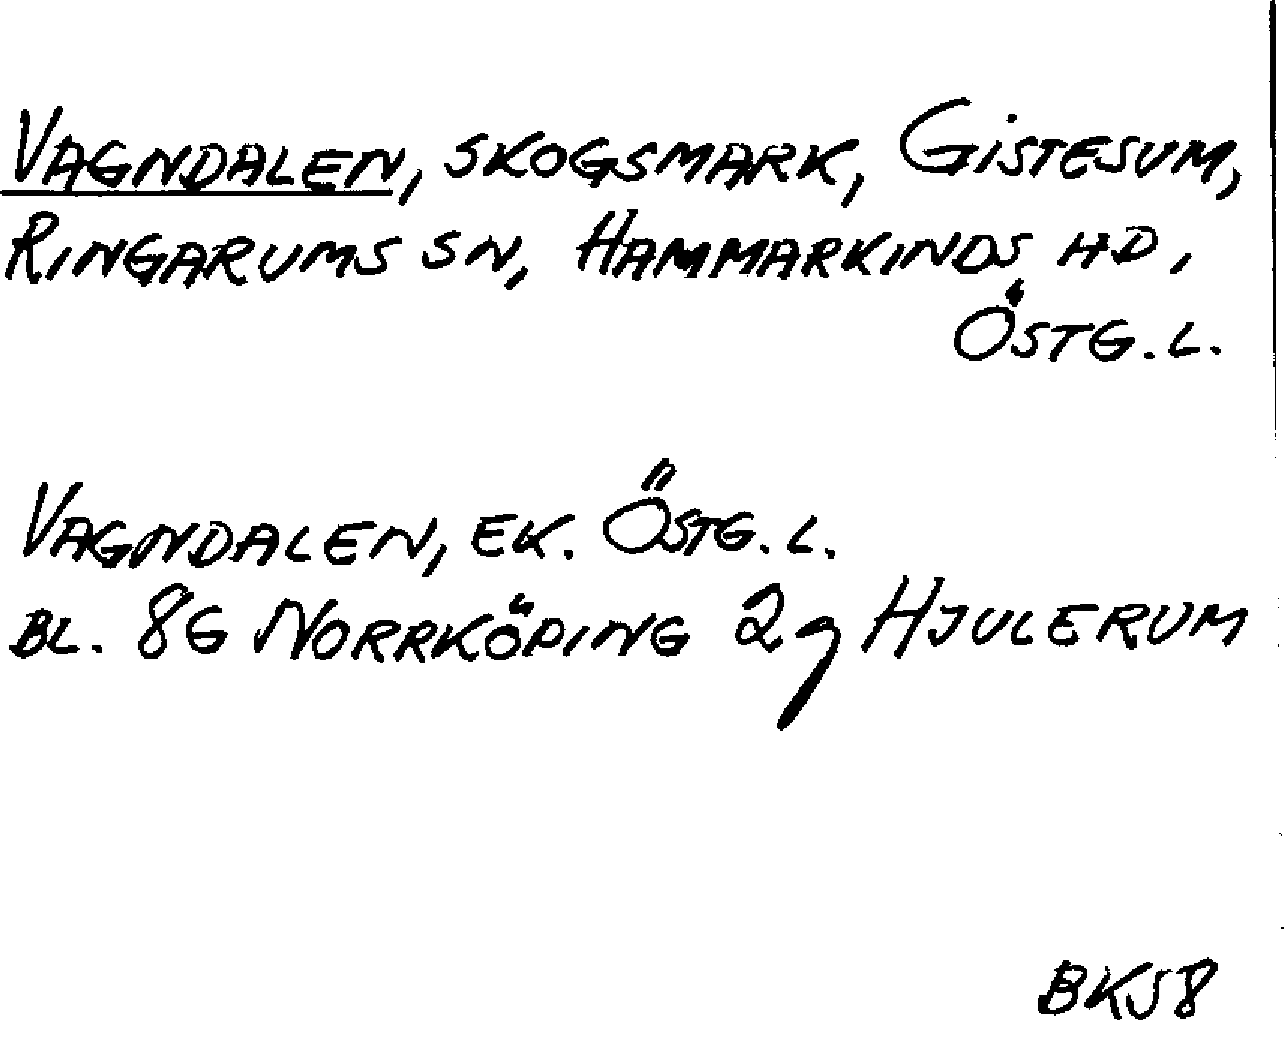 VAGNDALEN, SKOGSMARK, GISTESUM,
RINGARUMS SN, HAMMARKINDS HD,
ÖSTG.L.
VAGNDALEN, EK. ÖSTG.L.
BL. 8G NORRKÖPING 2g HJULERUM
BKS8